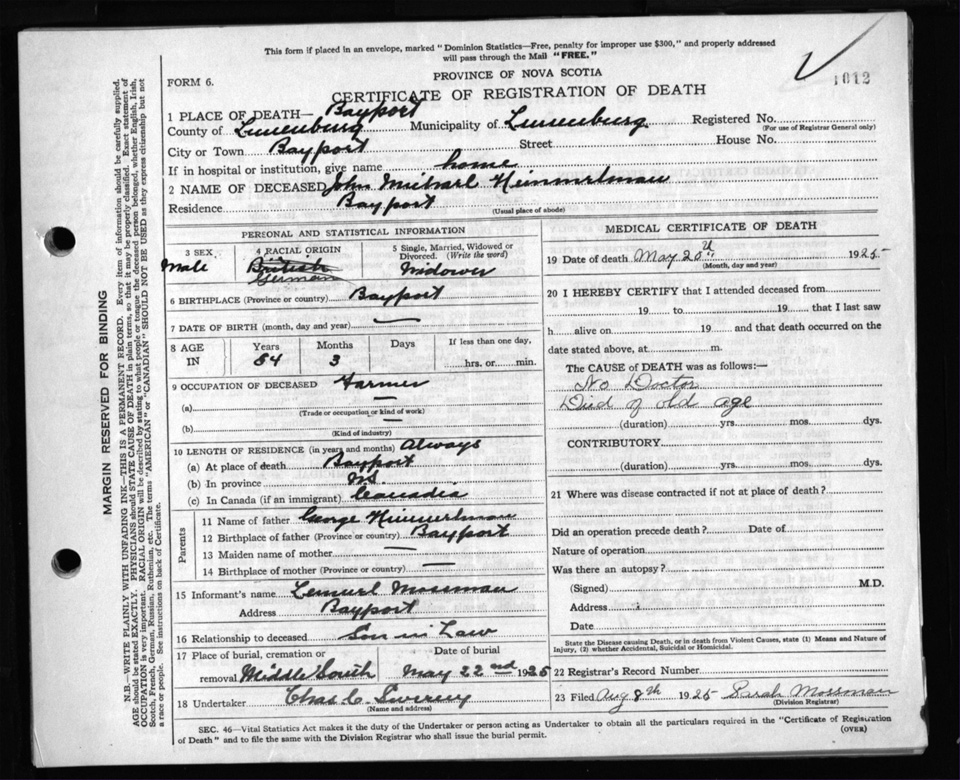 This form if placed in an envelope, marked "Dominion Statistics—Free, penalty for improper use $300," and properly addressed
will pass through the Mail "FREE."
1012
FORM 6.
PROVINCE OF NOVA SCOTIA
CERTIFICATE OF REGISTRATION OF DEATH
1 PLACE OF DEATH— Bayport
County of Lunenburg Municipality of Lunenburg Registered No.
(For use of Registrar General only)
City or Town Bayport Street House No.
If in hospital or institution, give name home
2 NAME OF DECEASED John Michael Himmelman
Residence Bayport
(Usual place of abode)
PERSONAL AND STATISTICAL INFORMATION
3 SEX 4 RACIAL ORIGIN 5 Single, Married, Widowed or Divorced. (Write the word)
Male British Widower
German
6 BIRTHPLACE (Province or country) Bayport
7 DATE OF BIRTH (month, day and year) —
8 AGE IN Years Months Days If less than one day,
84 3 hrs. or min.
9 OCCUPATION OF DECEASED Farmer
(a) —
(Trade or occupation or kind of work)
(b) —
(Kind of industry)
10 LENGTH OF RESIDENCE (in years and months) Always
(a) At place of death Bayport
(b) In province NS.
(c) In Canada (if an immigrant) Canadia
Parents
11 Name of father George Himmelman
12 Birthplace of father (Province or country) Bayport
13 Maiden name of mother —
14 Birthplace of mother (Province or country) —
15 Informant's name Lemuel Mossman
Address Bayport
16 Relationship to deceased Son in Law
17 Place of burial, cremation or removal Middle South Date of burial May 22nd 1925
18 Undertaker Chas C.
(Name and address)
MEDICAL CERTIFICATE OF DEATH
19 Date of death May 20th 1925
(Month, day and year)
20 I HEREBY CERTIFY that I attended deceased from
19 to 19 that I last saw
h alive on 19 and that death occurred on the
date stated above, at m.
The CAUSE of DEATH was as follows:—
No Doctor
Died of old age
(duration) yrs. mos. dys.
CONTRIBUTORY
(duration) yrs. mos. dys.
21 Where was disease contracted if not at place of death?
Did an operation precede death? Date of
Nature of operation
Was there an autopsy?
(Signed) M.D.
Address
Date
State the Disease causing Death, or in death from Violent Causes, state (1) Means and Nature of
Injury, (2) whether Accidental, Suicidal or Homicidal.
22 Registrar's Record Number
23 Filed Aug 8th 1925 Sarah Mossman
(Division Registrar)
SEC. 46—Vital Statistics Act makes it the duty of the Undertaker or person acting as Undertaker to obtain all the particulars required in the "Certificate of Registration
of Death" and to file the same with the Division Registrar who shall issue the burial permit.
(OVER)
MARGIN RESERVED FOR BINDING
N.B.—WRITE PLAINLY WITH UNFADING INK—THIS IS A PERMANENT RECORD. Every item of information should be carefully supplied.
AGE should be stated EXACTLY. PHYSICIANS should STATE CAUSE OF DEATH in plain terms, so that it may be properly classified. Exact statement of
OCCUPATION is very important. RACIAL ORIGIN will be described by stating to what people or tongue the deceased person belonged, whether English, Irish,
Scotch, French, German, Russian, Ruthenian, etc. The terms "AMERICAN" or "CANADIAN" SHOULD NOT BE USED as they express citizenship but not
a race or people. See instructions on back of Certificate.